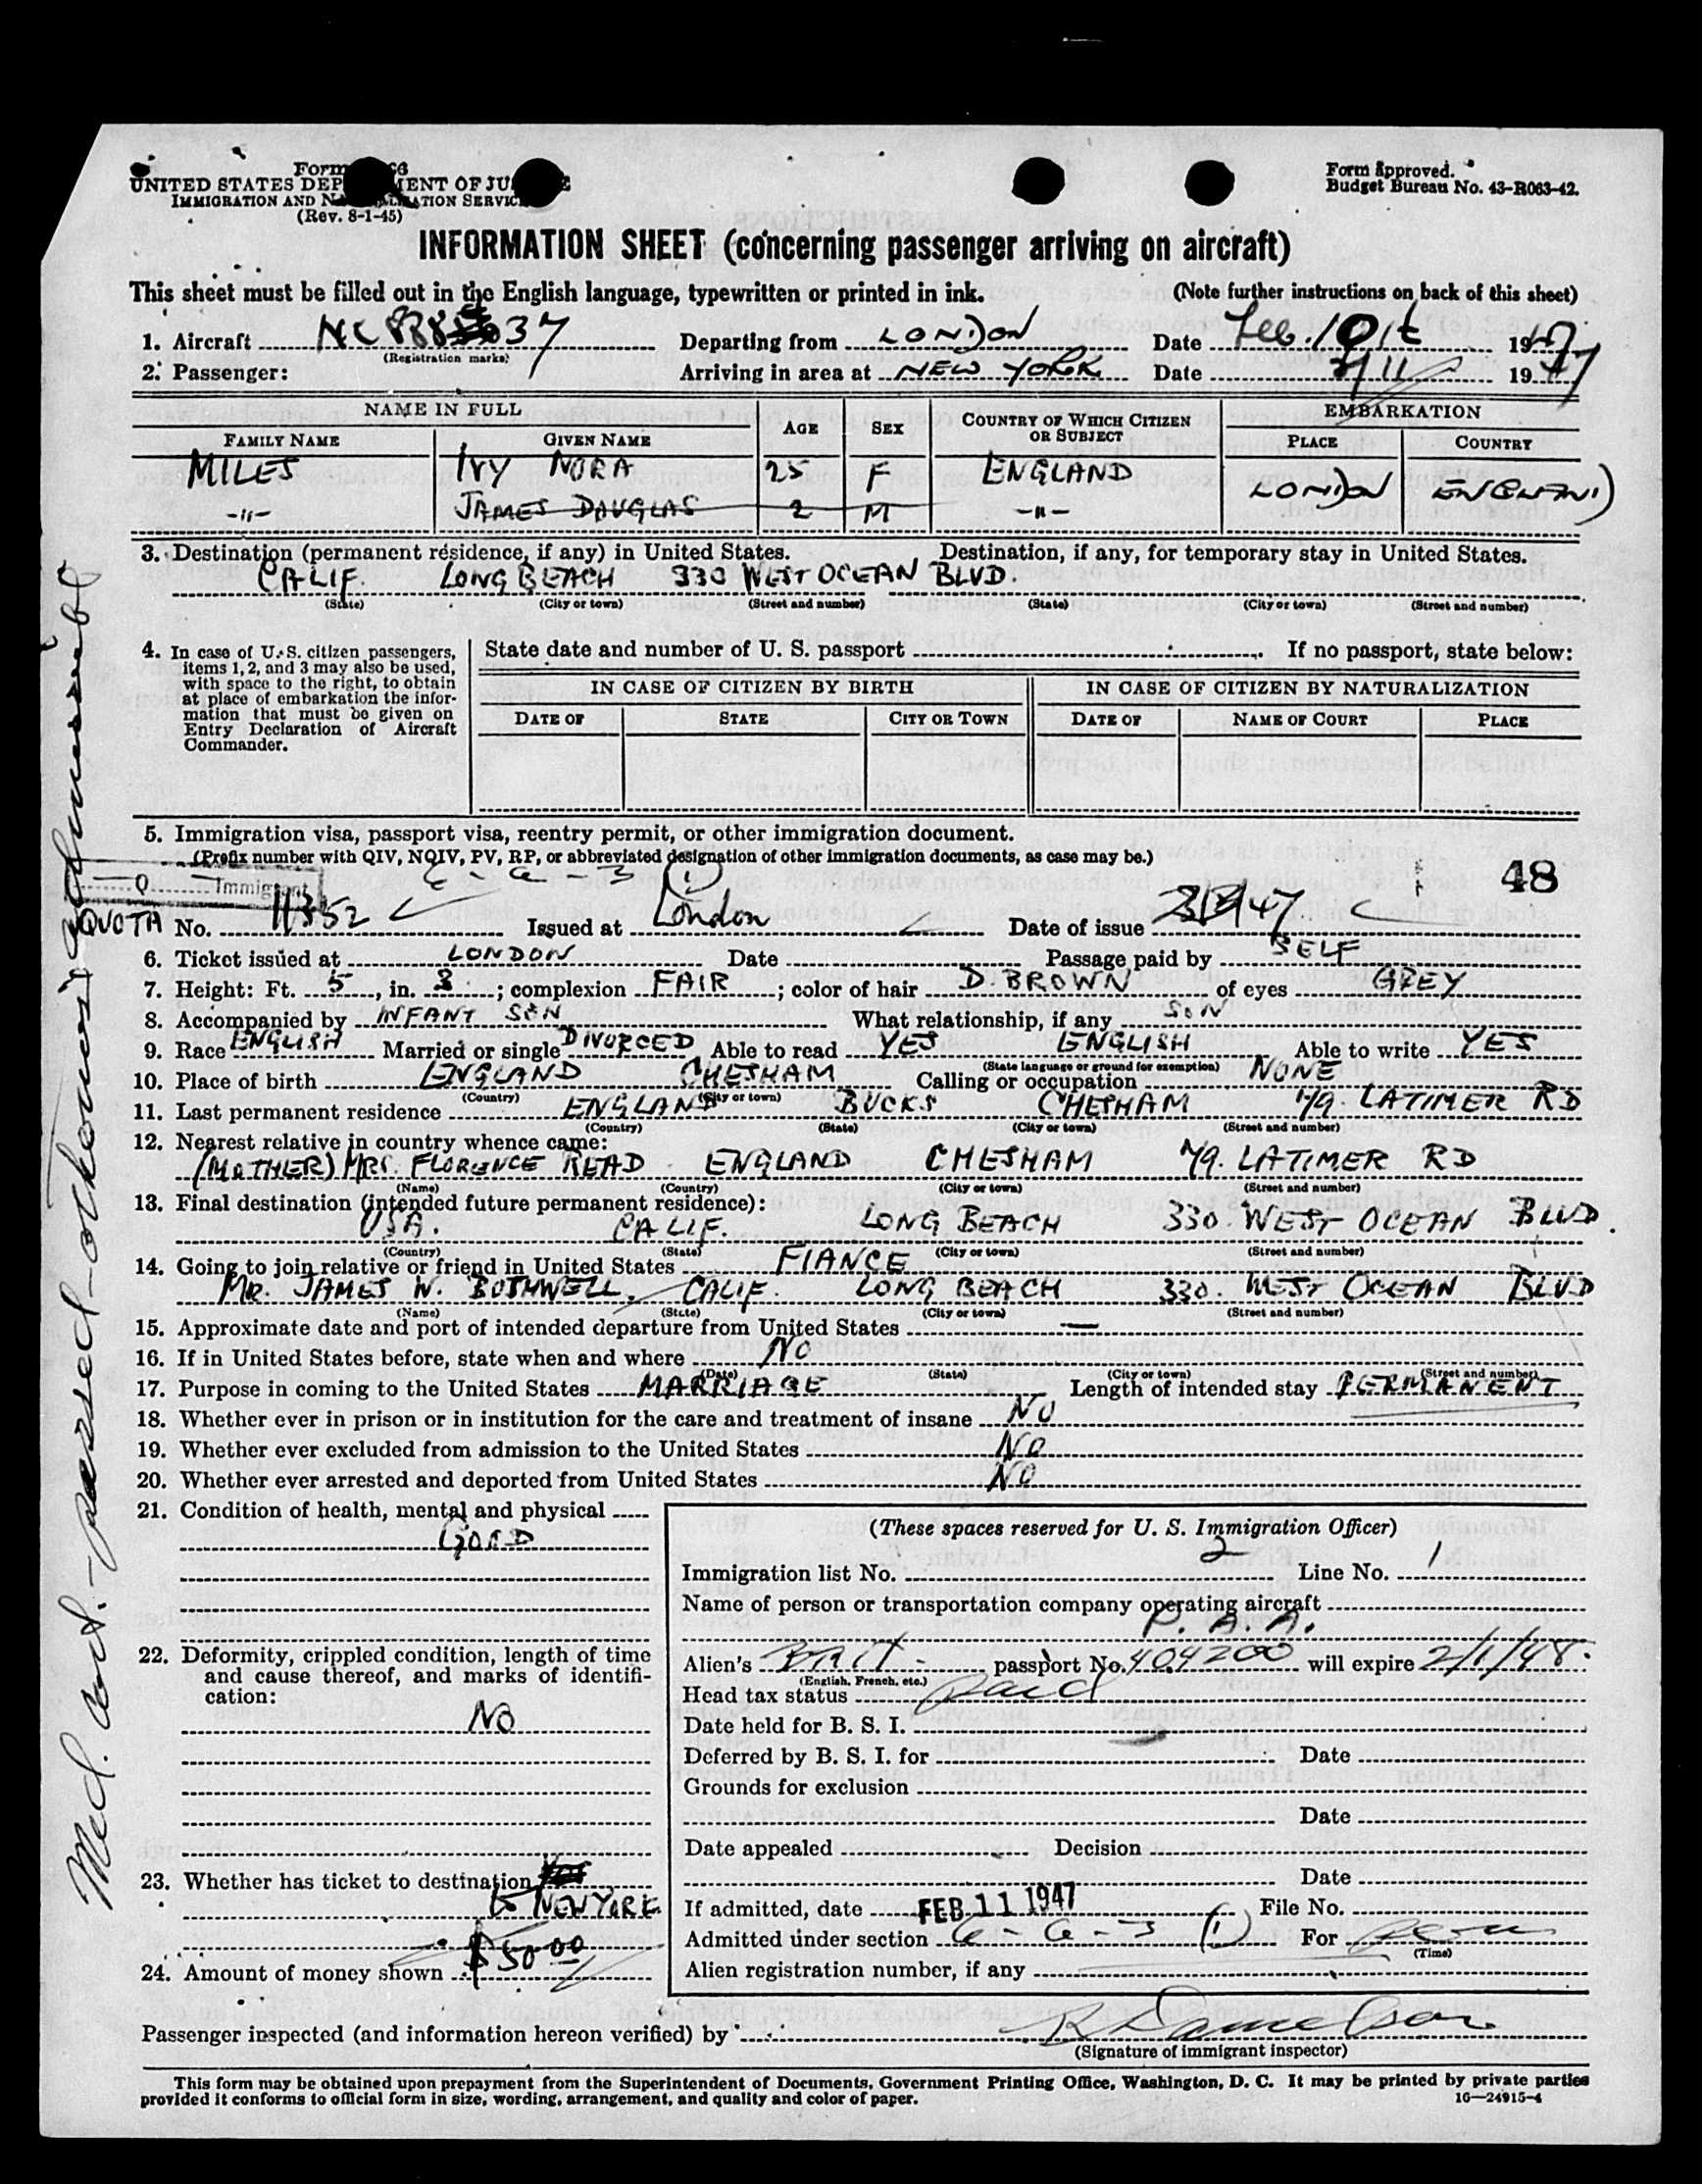 Form
UNITED STATES DEP ENT OF JU
IMMIGRATION AND N ATION SERVIC
(Rev. 8-1-45)
Form approved.
Budget Bureau No. 43-R063-42.
INFORMATION SHEET (concerning passenger arriving on aircraft)
This sheet must be filled out in the English language, typewritten or printed in ink. (Note further instructions on back of this sheet)
1. Aircraft NC 37 Departing from LONDON Date Feb. 10th 1947
(Registration marks)
2. Passenger: Arriving in area at NEW YORK Date 2/11 1947
NAME IN FULL AGE SEX COUNTRY OF WHICH CITIZEN OR SUBJECT EMBARKATION
FAMILY NAME GIVEN NAME PLACE COUNTRY
MILES IVY NORA 25 F ENGLAND LONDON ENGLAND
-"- JAMES DOUGLAS 2 M -"-
3. Destination (permanent residence, if any) in United States. Destination, if any, for temporary stay in United States.
CALIF. LONG BEACH 330 WEST OCEAN BLVD.
(State) (City or town) (Street and number) (State) (City or town) (Street and number)
4. In case of U. S. citizen passengers, items 1, 2, and 3 may also be used, with space to the right, to obtain at place of embarkation the information that must be given on Entry Declaration of Aircraft Commander.
State date and number of U. S. passport If no passport, state below:
IN CASE OF CITIZEN BY BIRTH IN CASE OF CITIZEN BY NATURALIZATION
DATE OF STATE CITY OR TOWN DATE OF NAME OF COURT PLACE
5. Immigration visa, passport visa, reentry permit, or other immigration document.
(Prefix number with QIV, NQIV, PV, RP, or abbreviated designation of other immigration documents, as case may be.)
Q Immigrant 6-a-3 (1) 48
QUOTA No. 11352 Issued at London Date of issue
6. Ticket issued at LONDON Date Passage paid by SELF
7. Height: Ft. 5, in. 3; complexion FAIR; color of hair D. BROWN of eyes GREY
8. Accompanied by INFANT SON What relationship, if any SON
9. Race ENGLISH Married or single DIVORCED Able to read YES ENGLISH Able to write YES
(State language or ground for exemption)
10. Place of birth ENGLAND CHESHAM Calling or occupation NONE
(Country) (City or town)
11. Last permanent residence ENGLAND BUCKS CHESHAM 119. LATIMER RD
(Country) (State) (City or town) (Street and number)
12. Nearest relative in country whence came:
(MOTHER) MRS. FLORENCE READ ENGLAND CHESHAM 119. LATIMER RD
(Name) (Country) (City or town) (Street and number)
13. Final destination (intended future permanent residence):
USA. CALIF. LONG BEACH 330. WEST OCEAN BLVD.
(Country) (State) (City or town) (Street and number)
14. Going to join relative or friend in United States FIANCE
MR. JAMES W. BOTHWELL, CALIF. LONG BEACH 330. WEST OCEAN BLVD
(Name) (State) (City or town) (Street and number)
15. Approximate date and port of intended departure from United States —
16. If in United States before, state when and where NO
(Date) (State) (City or town) (Street and number)
17. Purpose in coming to the United States MARRIAGE Length of intended stay PERMANENT
18. Whether ever in prison or in institution for the care and treatment of insane NO
19. Whether ever excluded from admission to the United States NO
20. Whether ever arrested and deported from United States NO
21. Condition of health, mental and physical
GOOD
22. Deformity, crippled condition, length of time and cause thereof, and marks of identification:
NO
23. Whether has ticket to destination
to NEW YORK
24. Amount of money shown $50.00
(These spaces reserved for U. S. Immigration Officer)
Immigration list No. 2 Line No. 1
Name of person or transportation company operating aircraft
P. A. A.
Alien's Brit. passport No. 404200 will expire 2/1/48.
(English, French, etc.)
Head tax status paid
Date held for B. S. I.
Deferred by B. S. I. for Date
Grounds for exclusion
Date
Date appealed Decision
Date
If admitted, date FEB 11 1947 File No.
Admitted under section 6-a-3 (1) For perm
(Time)
Alien registration number, if any
Passenger inspected (and information hereon verified) by R Danielson
(Signature of immigrant inspector)
This form may be obtained upon prepayment from the Superintendent of Documents, Government Printing Office, Washington, D. C. It may be printed by private parties
provided it conforms to official form in size, wording, arrangement, and quality and color of paper. 16—24915-4
Med. cert. - passed - otherwise admissible